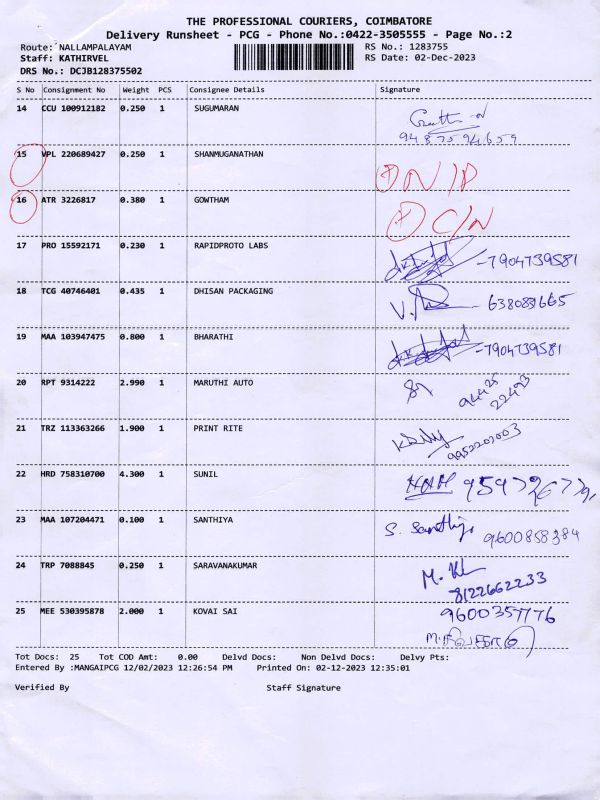 THE PROFESSIONAL COURIERS, COIMBATORE
Delivery Runsheet - PCG - Phone No.:0422-3505555 - Page No.:2
Route: NALLAMPALAYAM
RS No.: 1283755
Staff: KATHIRVEL
RS Date: 02-Dec-2023
DRS No.: DCJB128375502
S No Consignment No Weight PCS Consignee Details Signature
14 CCU 100912182 0.250 1 SUGUMARAN
94875 94659
15 VPL 220689427 0.250 1 SHANMUGANATHAN N/P
16 ATR 3226817 0.380 1 GOWTHAM C/N
17 PRO 15592171 0.230 1 RAPIDPROTO LABS -7904739581
18 TCG 40746401 0.435 1 DHISAN PACKAGING
19 MAA 103947475 0.800 1 BHARATHI -7904739581
20 RPT 9314222 2.990 1 MARUTHI AUTO 94425
22423
21 TRZ 113363266 1.900 1 PRINT RITE
9952202003
22 HRD 758310700 4.300 1 SUNIL
23 MAA 107204471 0.100 1 SANTHIYA S. Santhiya 9600858384
24 TRP 7088845 0.250 1 SARAVANAKUMAR
8122662233
25 MEE 530395878 2.000 1 KOVAI SAI 9600357776
Tot Docs: 25 Tot COD Amt: 0.00 Delvd Docs: Non Delvd Docs: Delvy Pts:
Entered By :MANGAIPCG 12/02/2023 12:26:54 PM Printed On: 02-12-2023 12:35:01
Verified By Staff Signature